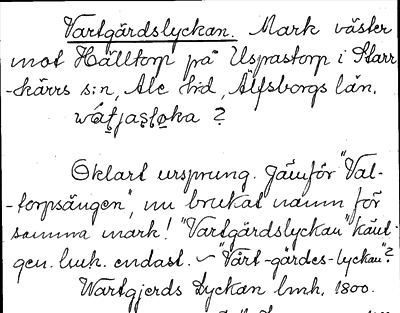 Vartgärdslyckan. Mark väster
mot Hälltorp på Uspastorp i Starr-
-kärrs s:n, Ale hd, Älfsborgs län.
Oklart ursprung. Jämför "Val-
-torpsängen", nu brukat namn för
samma mark! "Vartgärdslyckan" känt-
gen. lmh. endast. ~ "Vårt-gärdes-lyckan"?
Wartgjerds Lyckan lmh. 1800.